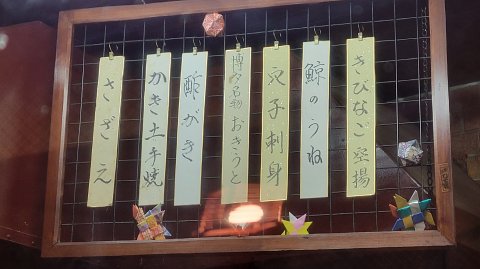 きびなご空揚
鯨のうね
穴子刺身
博多名物おきうと
酢がき
かき土手焼
さざえ